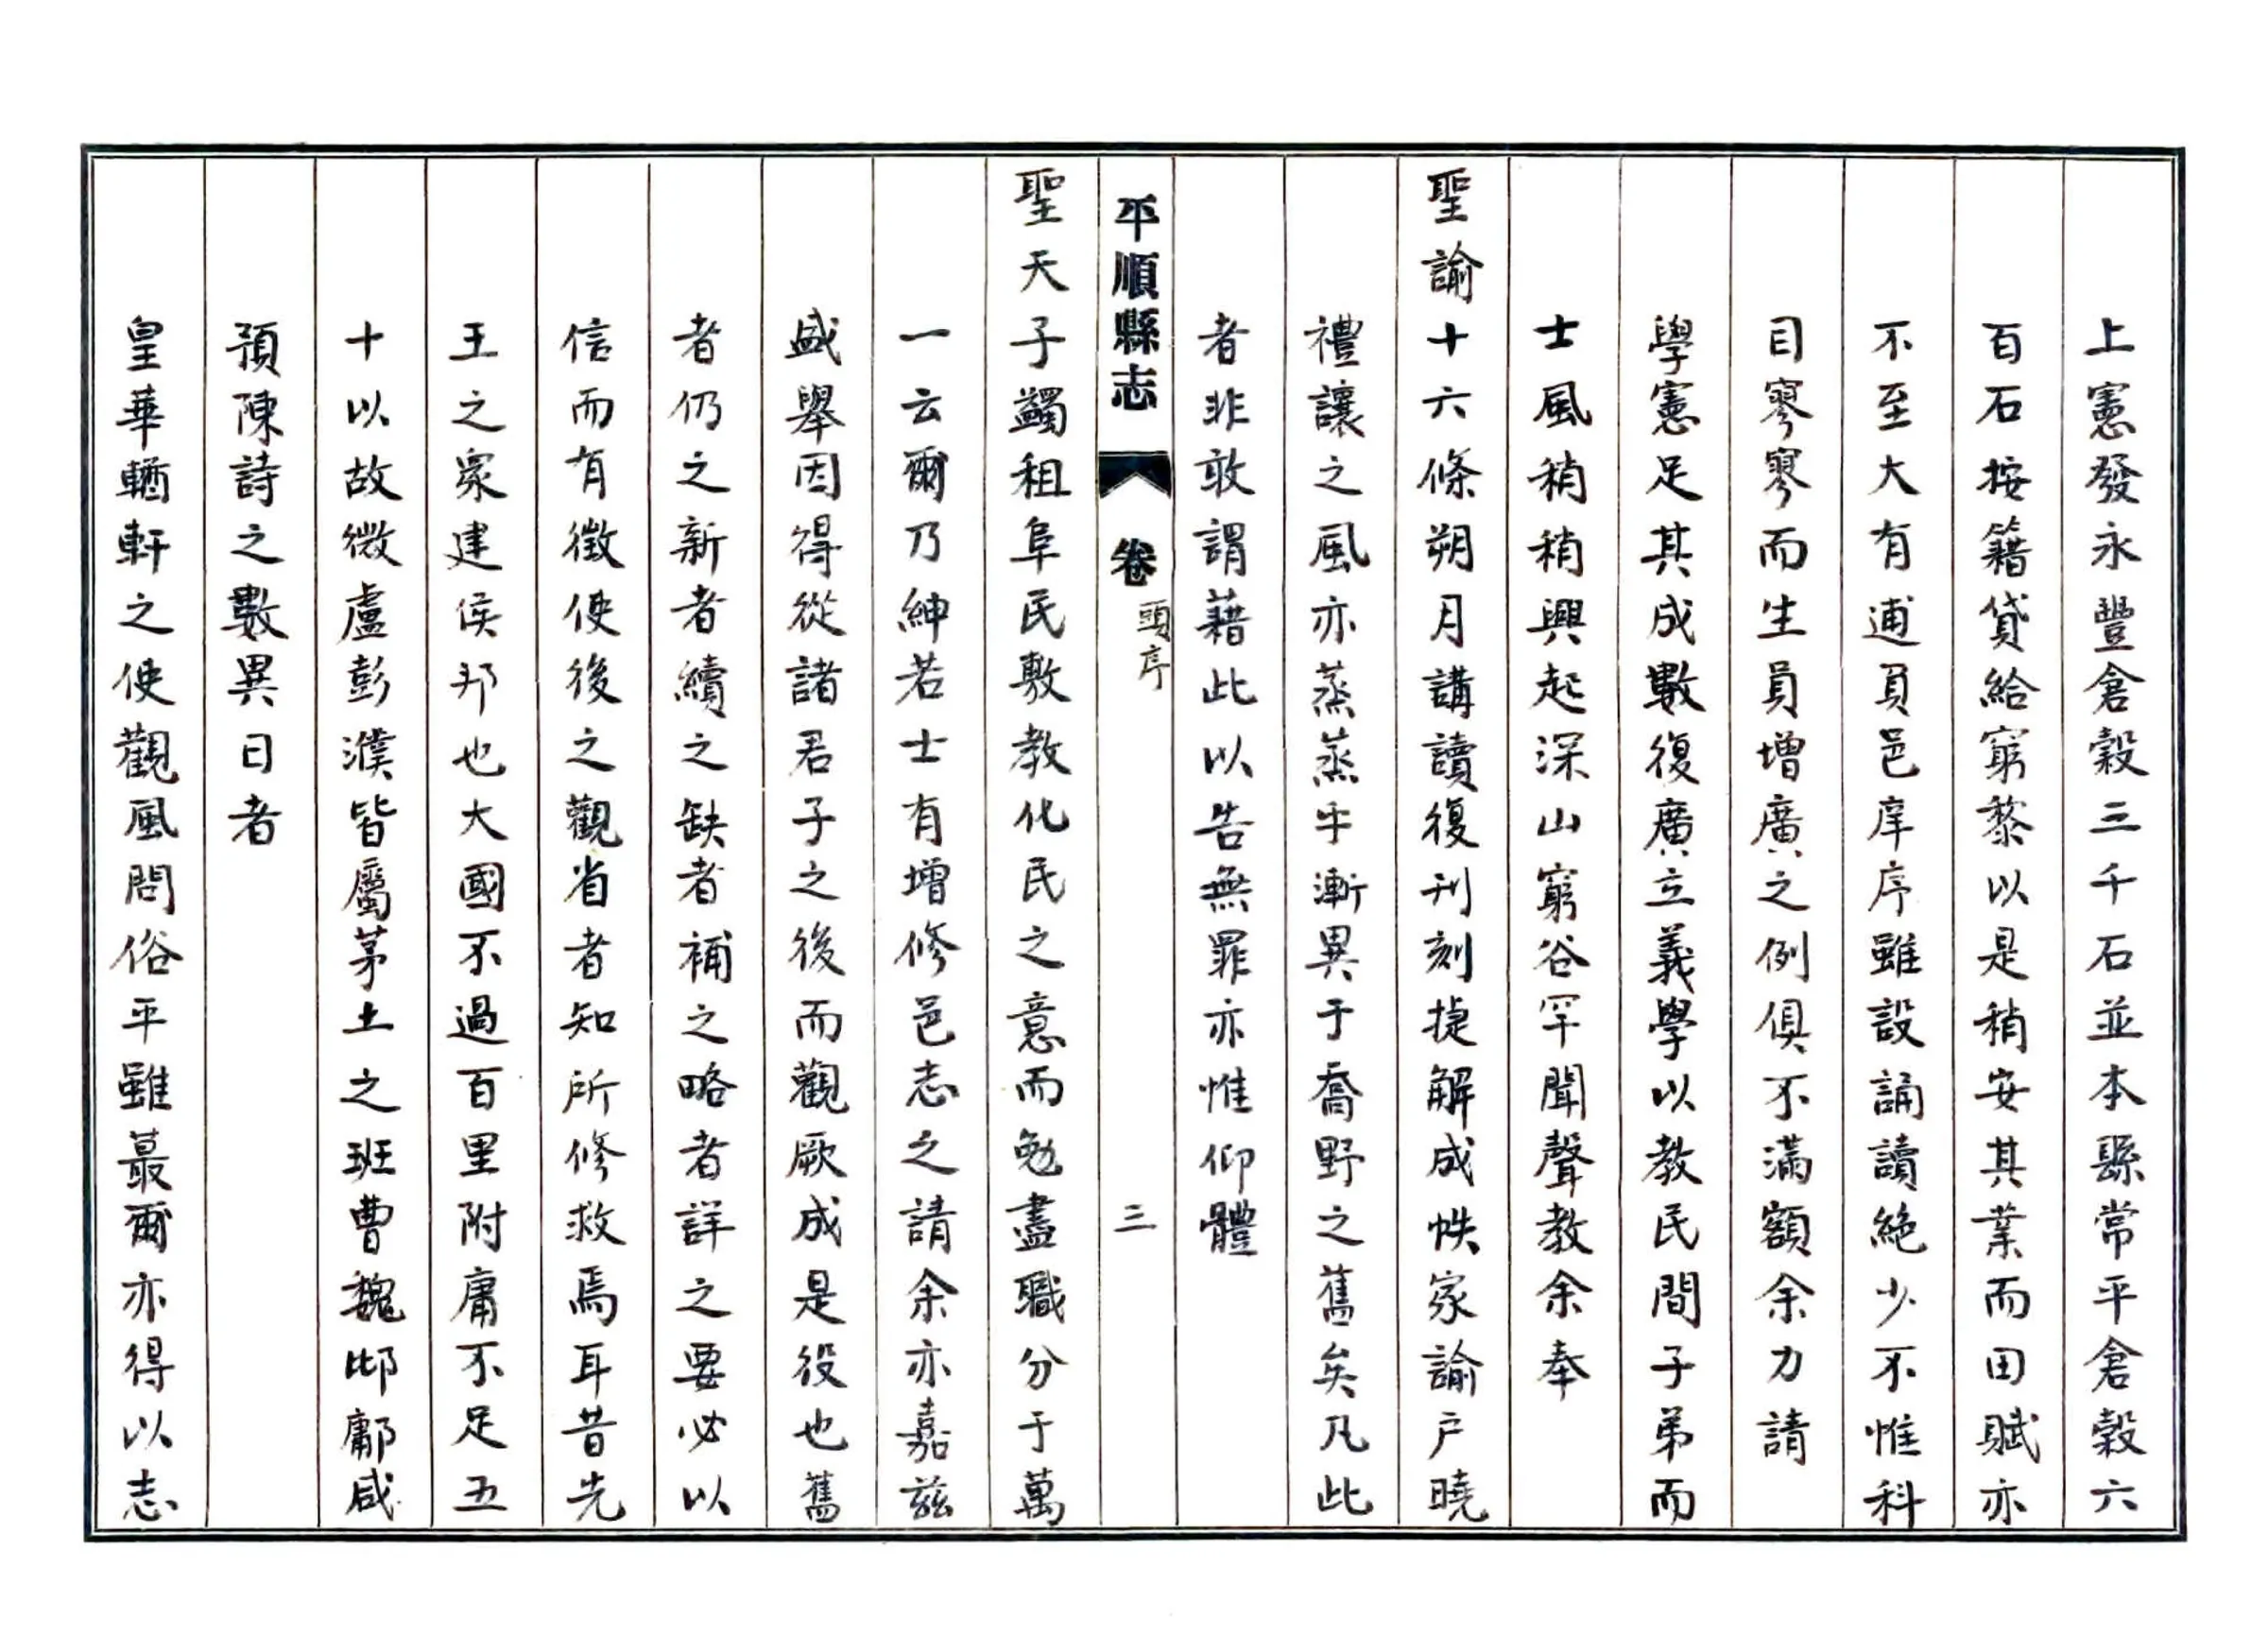 上憲發永豐倉穀三千石並本縣常平倉穀六
百石按籍貸給窮黎以是稍安其業而田賦亦
不至大有逋負邑庠序雖設誦讀絶少不惟科
目寥寥而生員增廣之例俱不滿額余力請
學憲足其成數復廣立義學以教民間子弟而
士風稍稍興起深山窮谷罕聞聲教余奉
聖諭十六條朔月講讀復刊刻捷解成帙家諭户曉
禮讓之風亦蒸蒸乎漸異于喬野之舊矣凡此
者非敢謂藉此以告無罪亦惟仰體
平順縣志 卷 頭序 三
聖天子蠲租阜民敷教化民之意而勉盡職分于萬
一云爾乃紳若士有增修邑志之請余亦嘉兹
盛舉因得從諸君子之後而觀厥成是役也舊
者仍之新者續之缺者補之略者詳之要必以
信而有徵使後之觀省者知所修救焉耳昔先
王之衆建侯邦也大國不過百里附庸不足五
十以故微盧彭濮皆屬茅土之班曹魏邶鄘咸
預陳詩之數異日者
皇華輶軒之使觀風問俗平雖蕞爾亦得以志